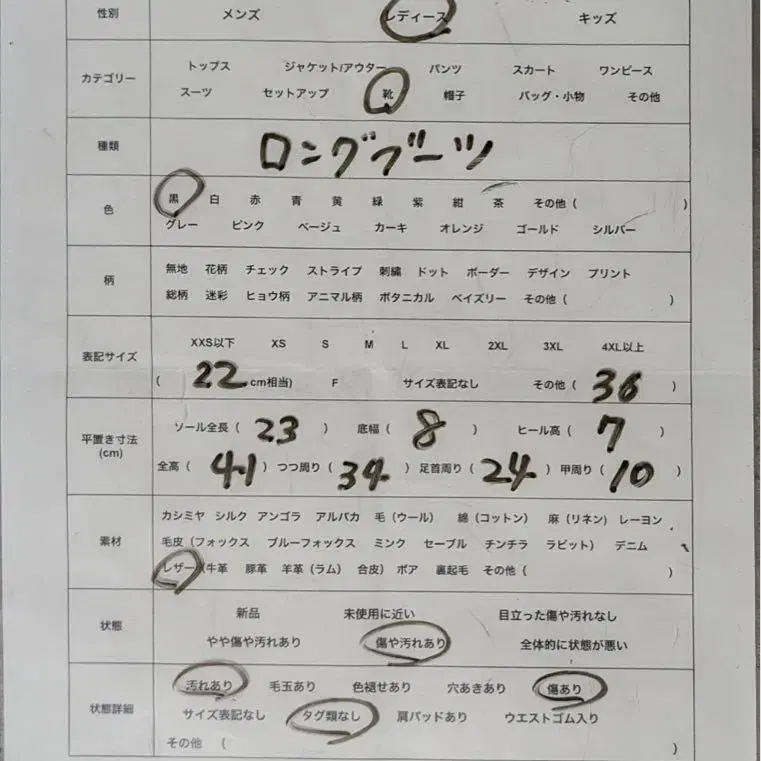 性別 メンズ レディース キッズ
カテゴリー
トップス ジャケット/アウター パンツ スカート ワンピース
スーツ セットアップ 靴 帽子 バッグ・小物 その他
種類 ロングブーツ
色
黒 白 赤 青 黄 緑 紫 紺 茶 その他 ( )
グレー ピンク ベージュ カーキ オレンジ ゴールド シルバー
柄
無地 花柄 チェック ストライプ 刺繍 ドット ボーダー デザイン プリント
総柄 迷彩 ヒョウ柄 アニマル柄 ボタニカル ペイズリー その他 ( )
表記サイズ
XXS以下 XS S M L XL 2XL 3XL 4XL以上
( 22 cm相当) F サイズ表記なし その他 ( 36 )
平置き寸法
(cm)
ソール全長 ( 23 ) 底幅 ( 8 ) ヒール高 ( 7 )
全高 ( 41 ) つつ周り ( 34 ) 足首周り ( 24 ) 甲周り ( 10 )
素材
カシミヤ シルク アンゴラ アルパカ 毛 (ウール) 綿 (コットン) 麻 (リネン) レーヨン
毛皮 (フォックス ブルーフォックス ミンク セーブル チンチラ ラビット) デニム
レザー (牛革 豚革 羊革 (ラム) 合皮) ボア 裏起毛 その他 ( )
状態
新品 未使用に近い 目立った傷や汚れなし
やや傷や汚れあり 傷や汚れあり 全体的に状態が悪い
状態詳細
汚れあり 毛玉あり 色褪せあり 穴あきあり 傷あり
サイズ表記なし タグ類なし 肩パッドあり ウエストゴム入り
その他 ( )